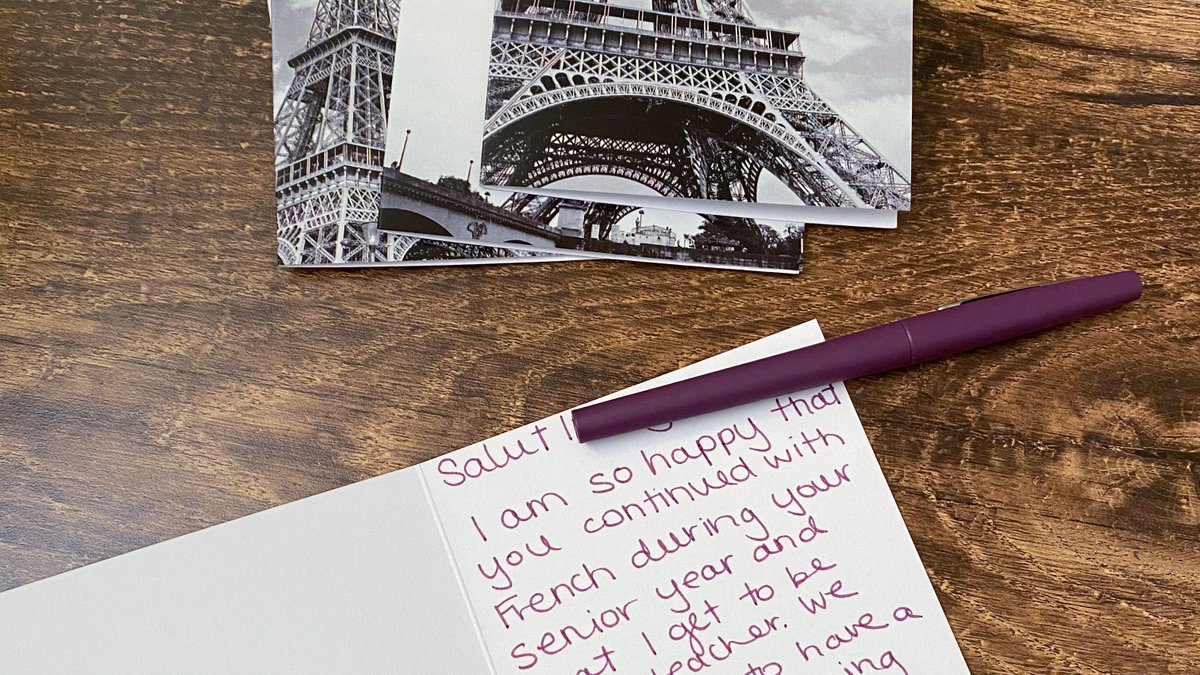 Salut
I am so happy that
you continued with
French during your
senior year and
I get to be
teacher. We
to have a